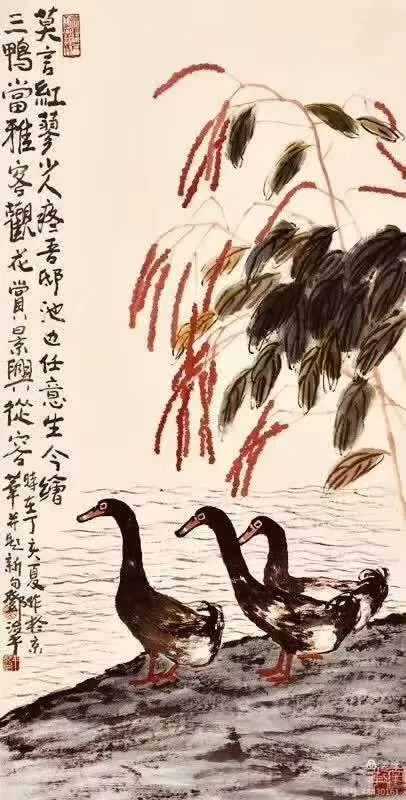 莫言紅蓼少人疼吾邸池边任意生今繪
三鴨當雅客觀花賞景興從容
時在丁亥夏作於京
華并題新句